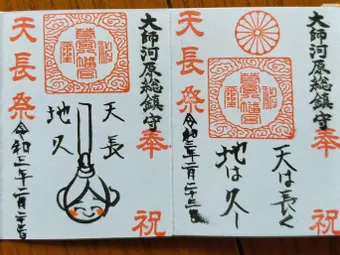 大師河原総鎮守
奉祝
天は長く
地は久し
天長祭
令和三年二月二十三日
大師河原総鎮守
奉祝
天長
地久
天長祭
令和三年二月二十三日